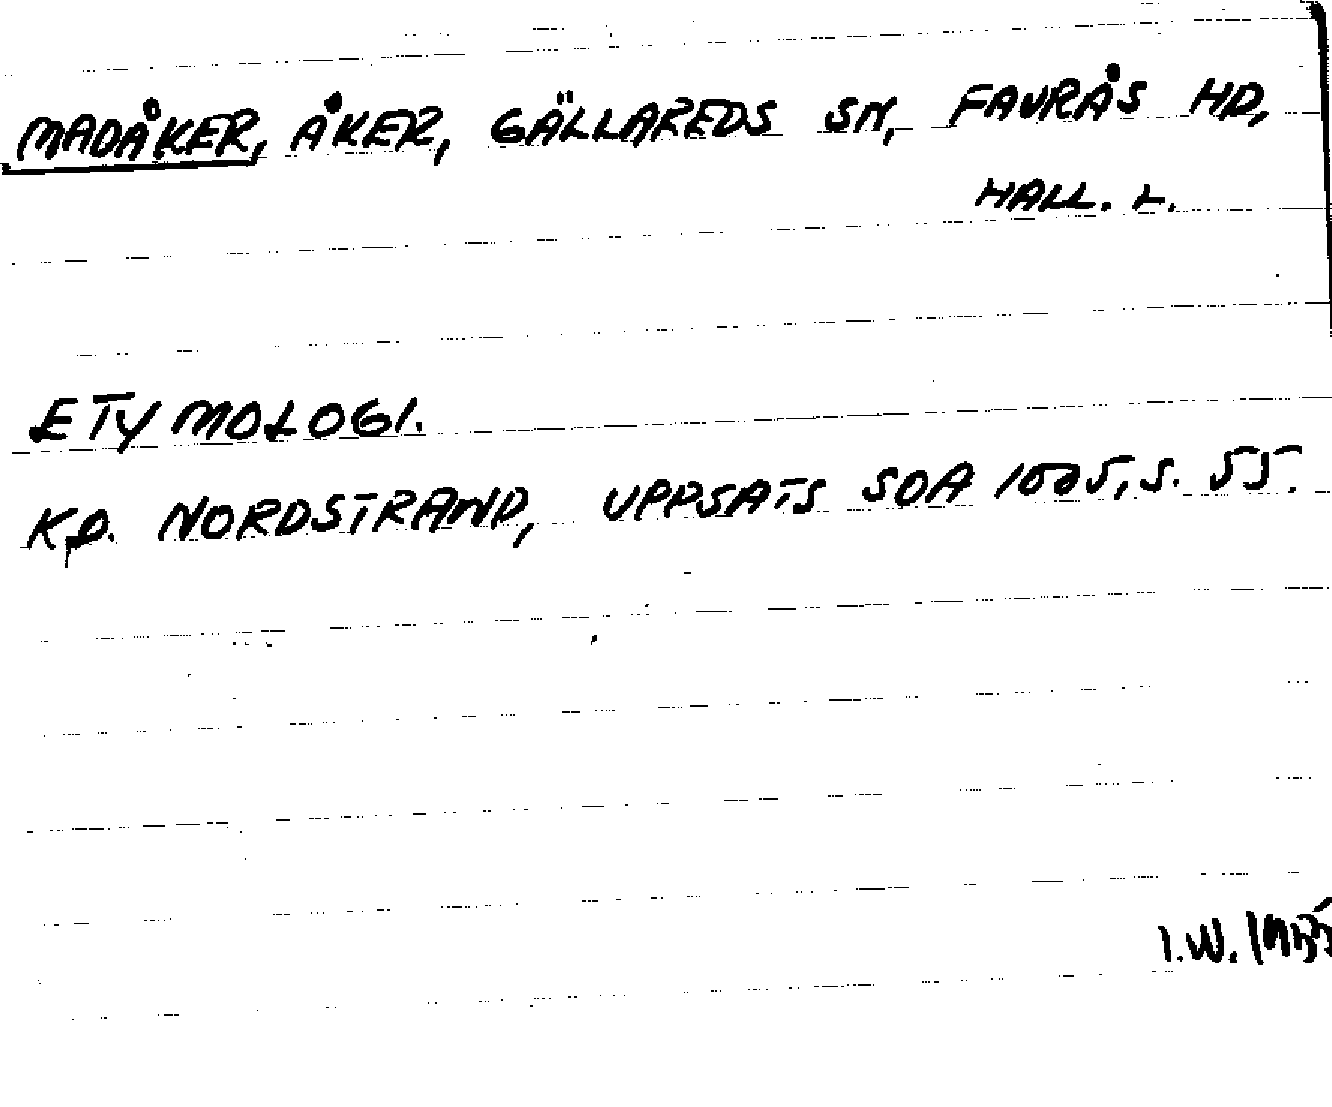 MADÅKER, ÅKER, GÄLLAREDS SN, FAURÅS HD,
HALL. L.
ETYMOLOGI.
K.Ø. NORDSTRAND, UPPSATS SOA S. 55.
I.W.